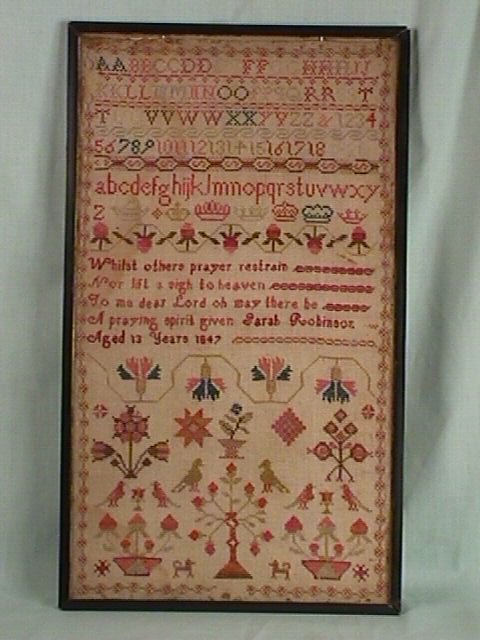 AABBCCDD FF HHIIJJ
KKLL MMNNOO PPQQRR T
T VVWWXXYYZZ & 1234
56789101112131415161718
abcdefghijklmnopqrstuvwxy
z
Whilst others prayer restrain
Nor lift a sigh to heaven
To me dear Lord oh may there be
A praying spirit given Sarah Robinson
Aged 13 Years 1847